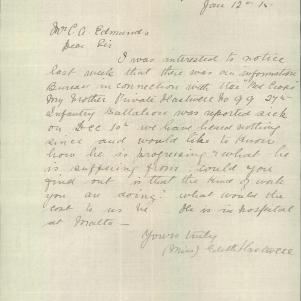 Jan 12th 15
Mr C. A. Edmunds
Dear Sir
I was interested to notice
last week that there was an information
Bureau in connection with the "Red Cross"
My Brother Private Hartwell No 99 27th
Infantry Battalion was reported sick
on Dec 10th we have heard nothing
since and would like to know
how he is progressing & what he
is suffering from could you
find out is that the kind of work
you are doing: what would the
cost to us be He is in hospital
at Malta —
Yours truly
(Miss) Edith Hartwell